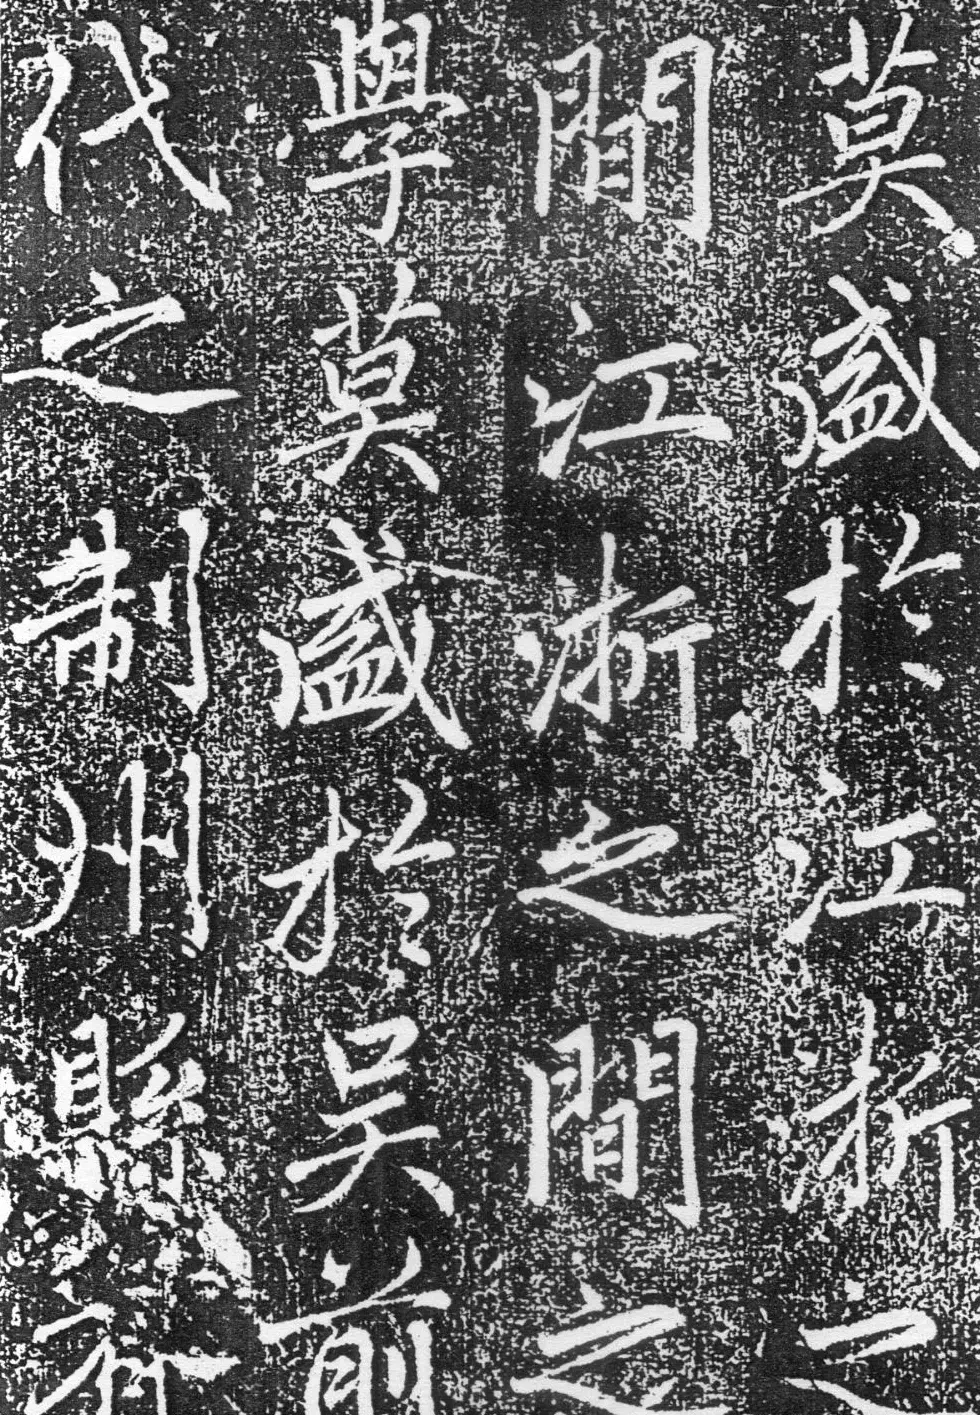 莫盛於江浙之
間江浙之間之
學莫盛於吴前
代之制州縣